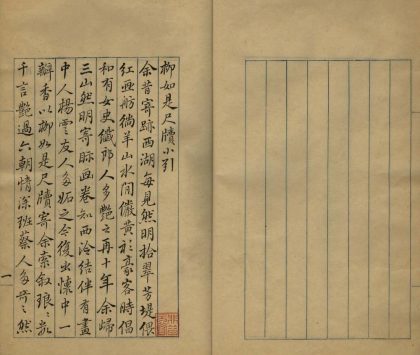 柳如是尺牘小引
余昔寄跡西湖每見然明拾翠芳堤偎
紅画舫徜羊山水間儼黄衫豪客時倡
和有女史纖郎人多艷之再十年余歸
三山然明寄眎画卷知西泠結伴有畫
中人楊雲友人多妬之今復出懷中一
瓣香以柳如是尺牘寄余索叙琅琅數
千言艷過六朝情深班蔡人多奇之然
一